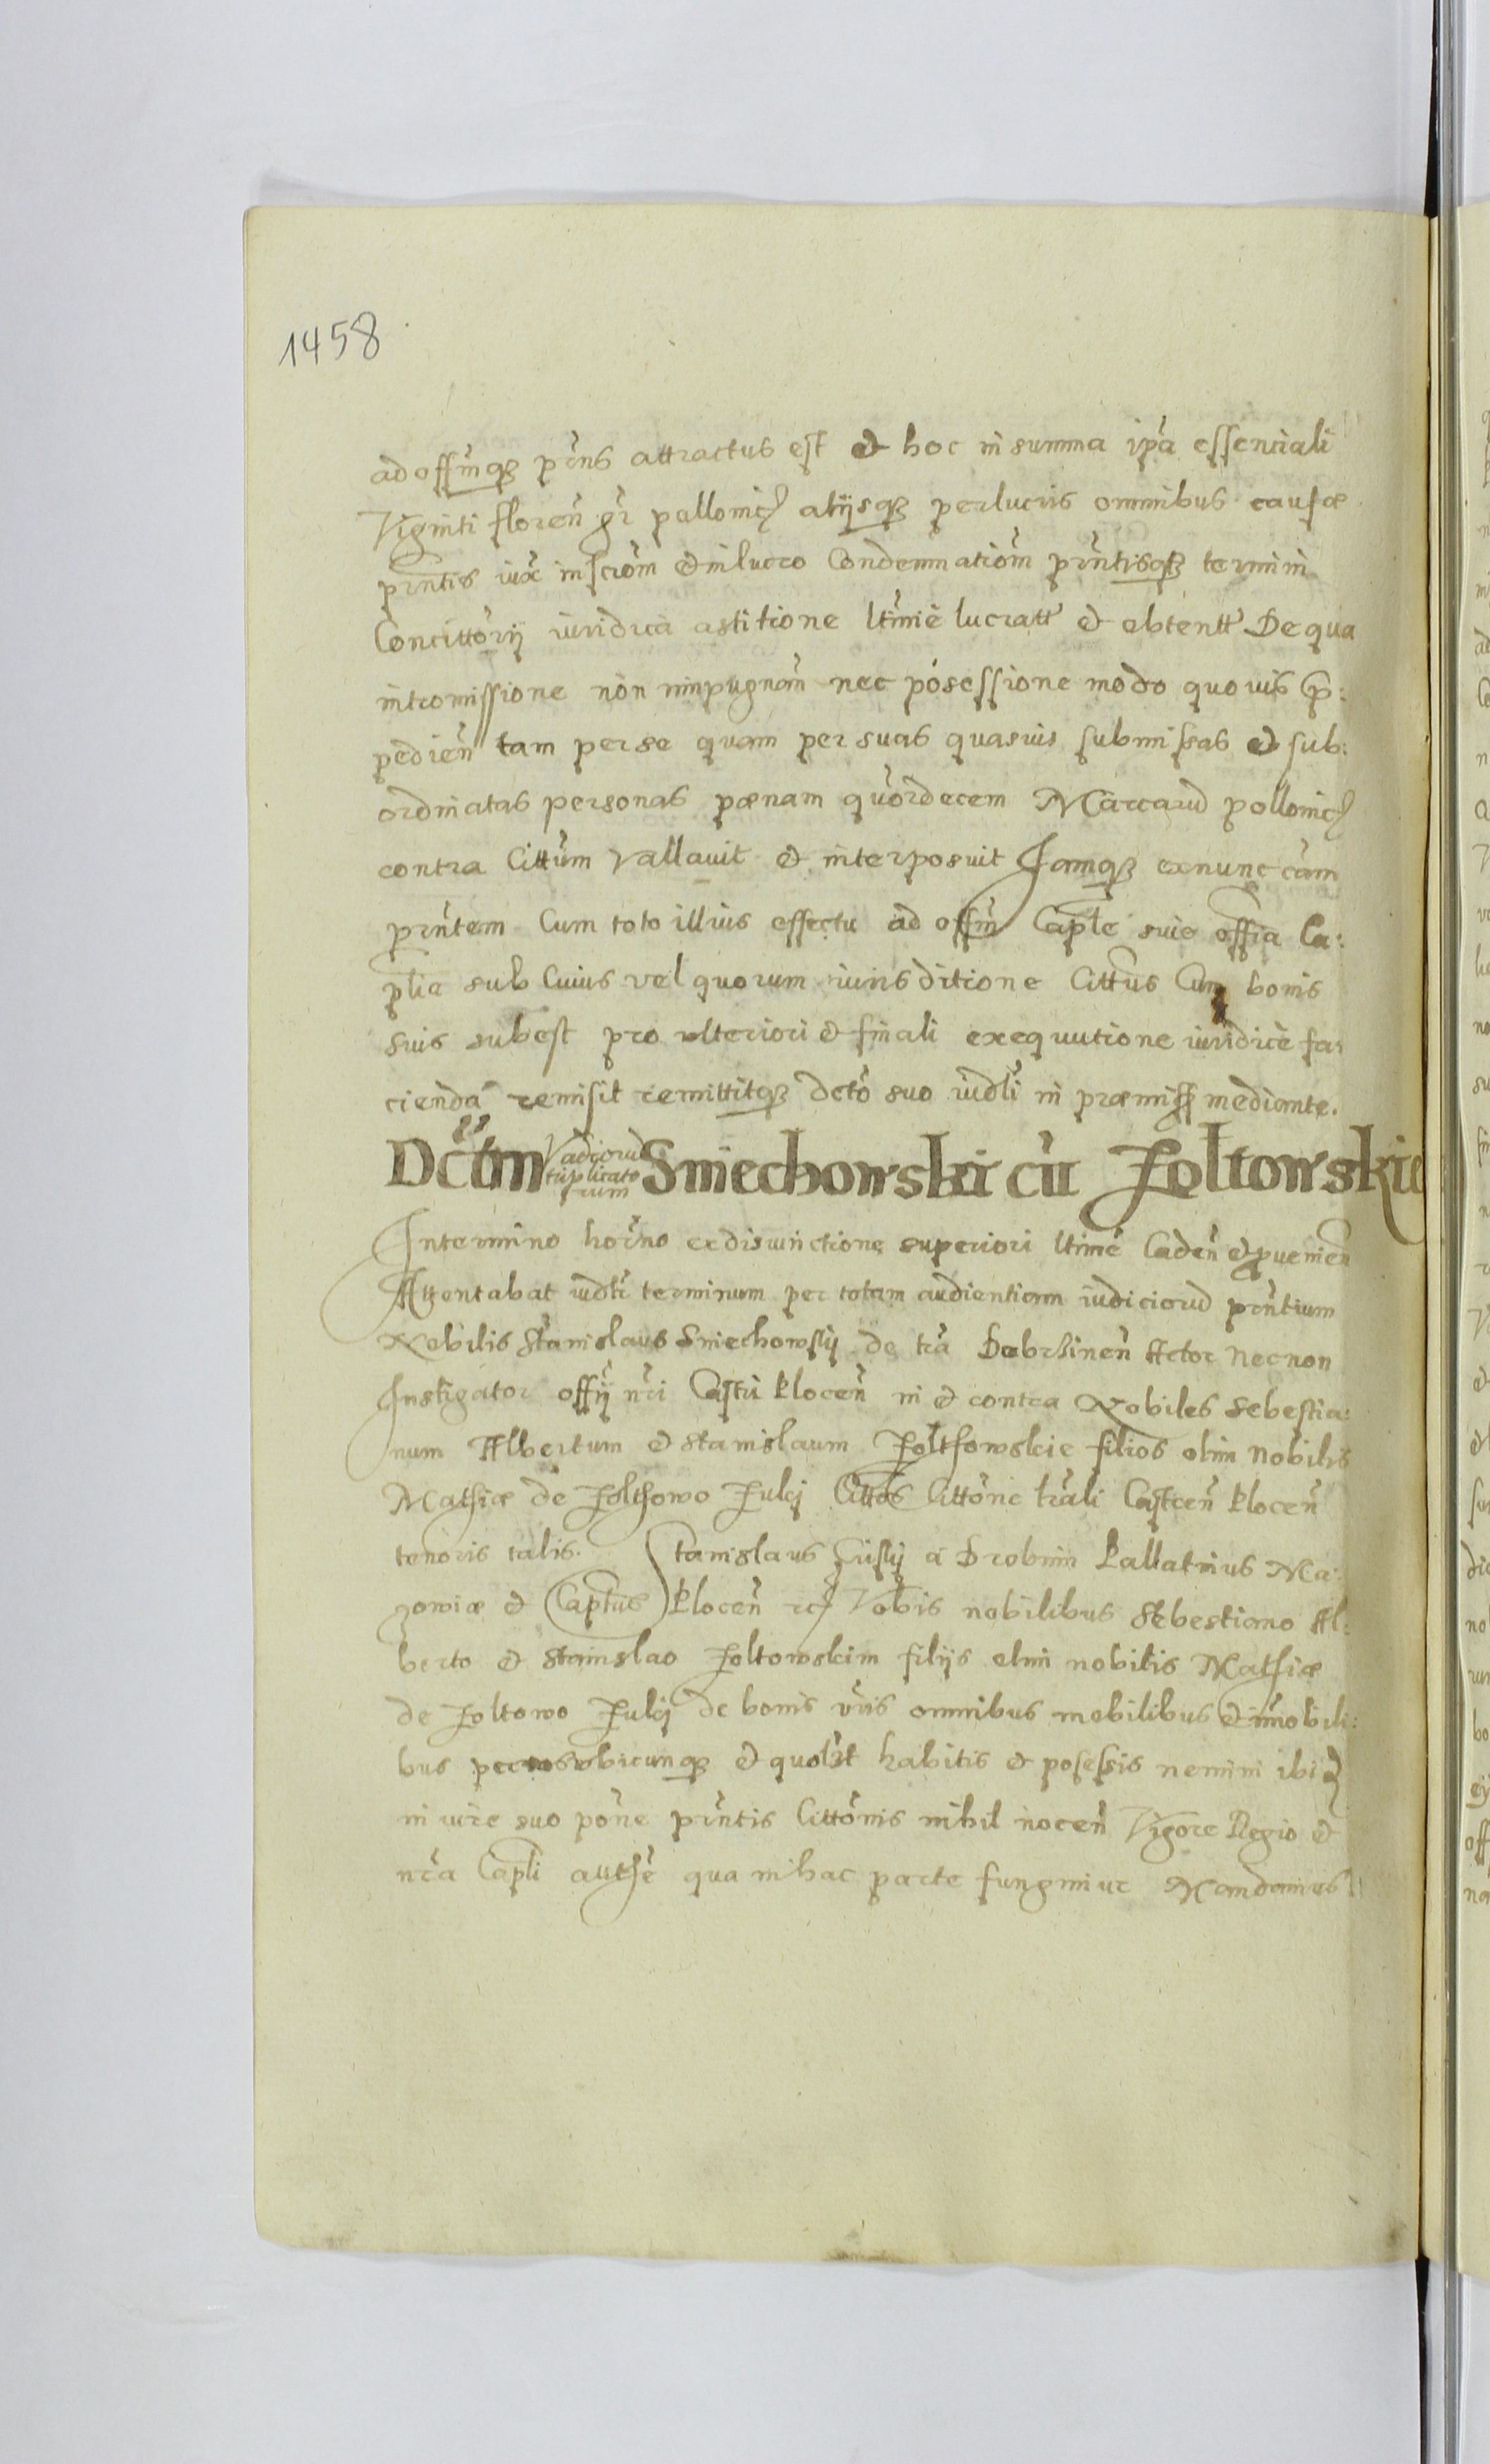 1458
ad offmqȝ prns attractus est et hoc in summa ipa essenciali
Viginti floren gr pollonic alijsqȝ perlucris omnibus causæ
prntis iux inscrom et in lucro Condemnatiom prntisqȝ termini
Concittorij iuridica astitione ltimie lucratt et obtentt De qua
intromissione non ninpugnam nec posessione modo quovis p:
pedien tam per se quam per suas quasvis submissas et sub:
ordinatas personas pænam quordecem Marcarum pollonic
contra Cittum Vallavit et interposuit Jamqȝ exnunc cam
prntem Cum toto illius effectu ad offm Caple suie offia Ca:
plia sub Cuius vel quorum iurisditione Cittus Cum bonis
suis subest pro ulteriori et finali exequutione iuridicè fa:
cienda remisit remittitqȝ dcto suo iudli in præmiss mediante.
Dctum Vadiorum triplicatorum Sniechowski cu Zoltowskie
In termino horno ex disiunctione superiori ltime Caden et pvenien
Attentabat iudlr terminum per totam audientiam iudiciorum prntium
Nobilis Stanislaus Sniechowsky de tra Dobrzinen Actor Necnon
Instigator offij nri Castri Plocen in et contra Nobiles Sebestia:
num Albertum et Stanislaum Zolthowskie filios olim Nobilis
Mathiæ de Zolthowo Fulki Cittos Cittone trali Castren Plocen
tenoris talis. Stanislaus Krisky a Drobnin Pallatinus Ma:
zowiæ et Captus Plocen rc Vobis nobilibus Sebestiano Al:
berto et Stanislao Zoltowskim filijs olim nobilis Mathiæ
de Zoltowo Fulki de bonis vris omnibus mobilibus et imobili:
bus per vos ubicunqȝ et quolit habitis et posessis nemini ibi
in iure suo pone prntis Cittonis nihil nocen Vigore Regio et
nra Capli authe qua in hac parte fungimur Mandamus